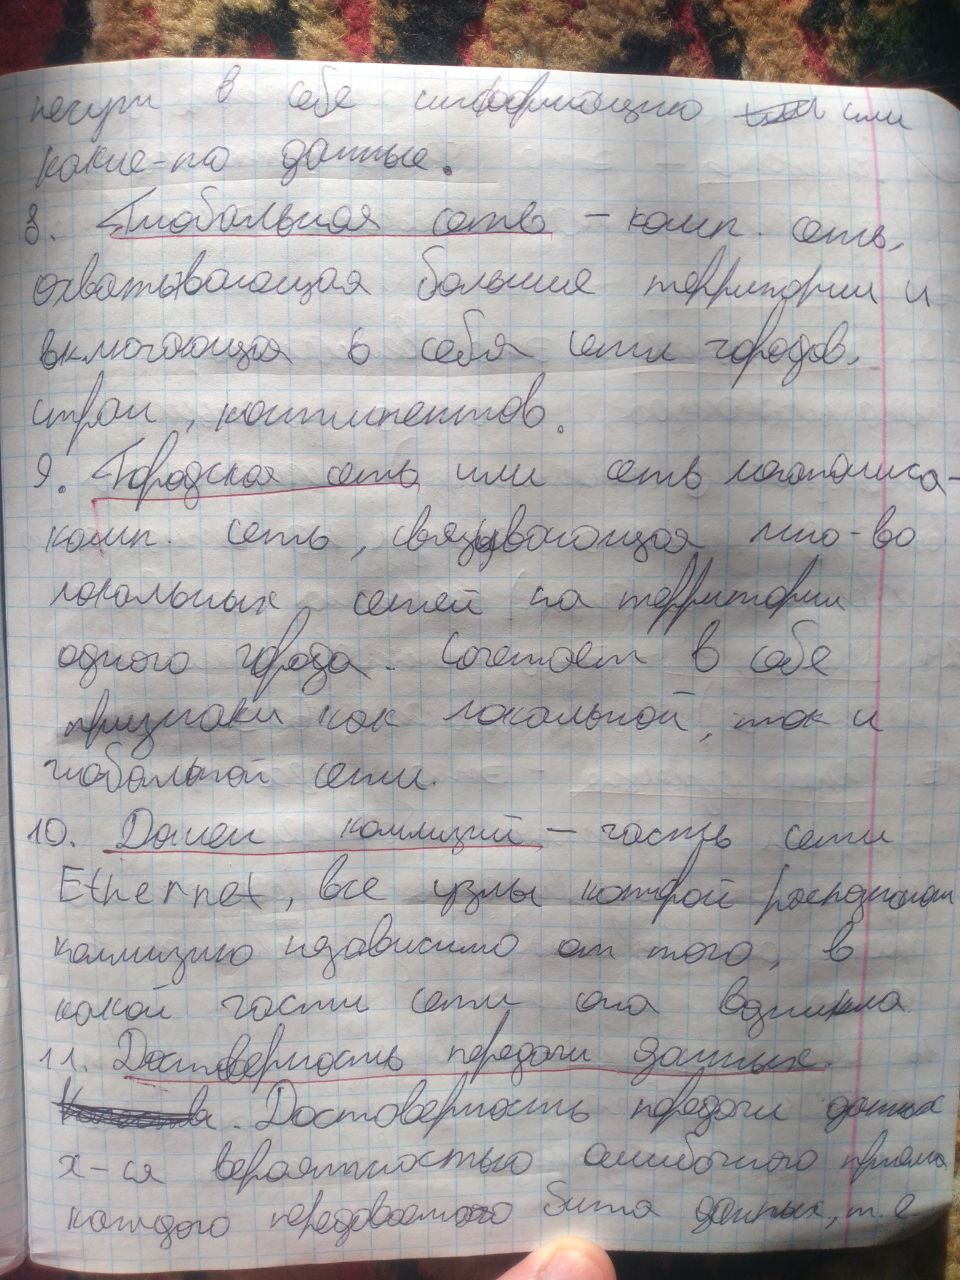 несут в себе информацию или
какие-то данные.
8. Глобальная сеть – комп. сеть,
охватывающая большие территории и
включающая в себя сети городов,
стран, континентов.
9. Городская сеть или сеть мегаполиса-
комп. сеть, связывающая мно-во
локальных сетей на территории
одного города. Сочетает в себе
признаки как локальной, так и
глобальной сети.
10. Домен коллизий – часть сети
Ethernet, все узлы которой распознают
коллизию независимо от того, в
какой части сети она возникла
11. Достоверность передачи данных.
Достоверность передачи данных
х-ся вероятностью ошибочного приема
каждого передаваемого бита данных, т.е.